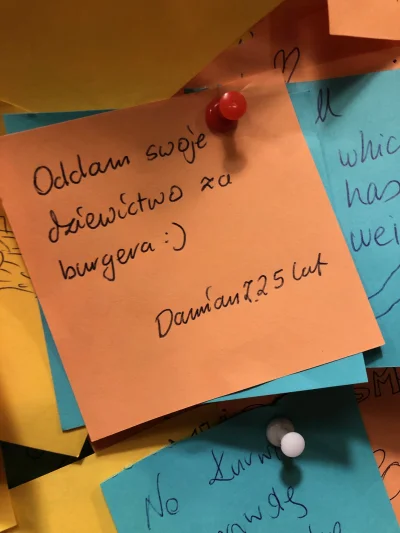 Oddam swoje
dziewictwo za
burgera :)
Damian Ż. 25 lat
whic
has
wei
No kurw